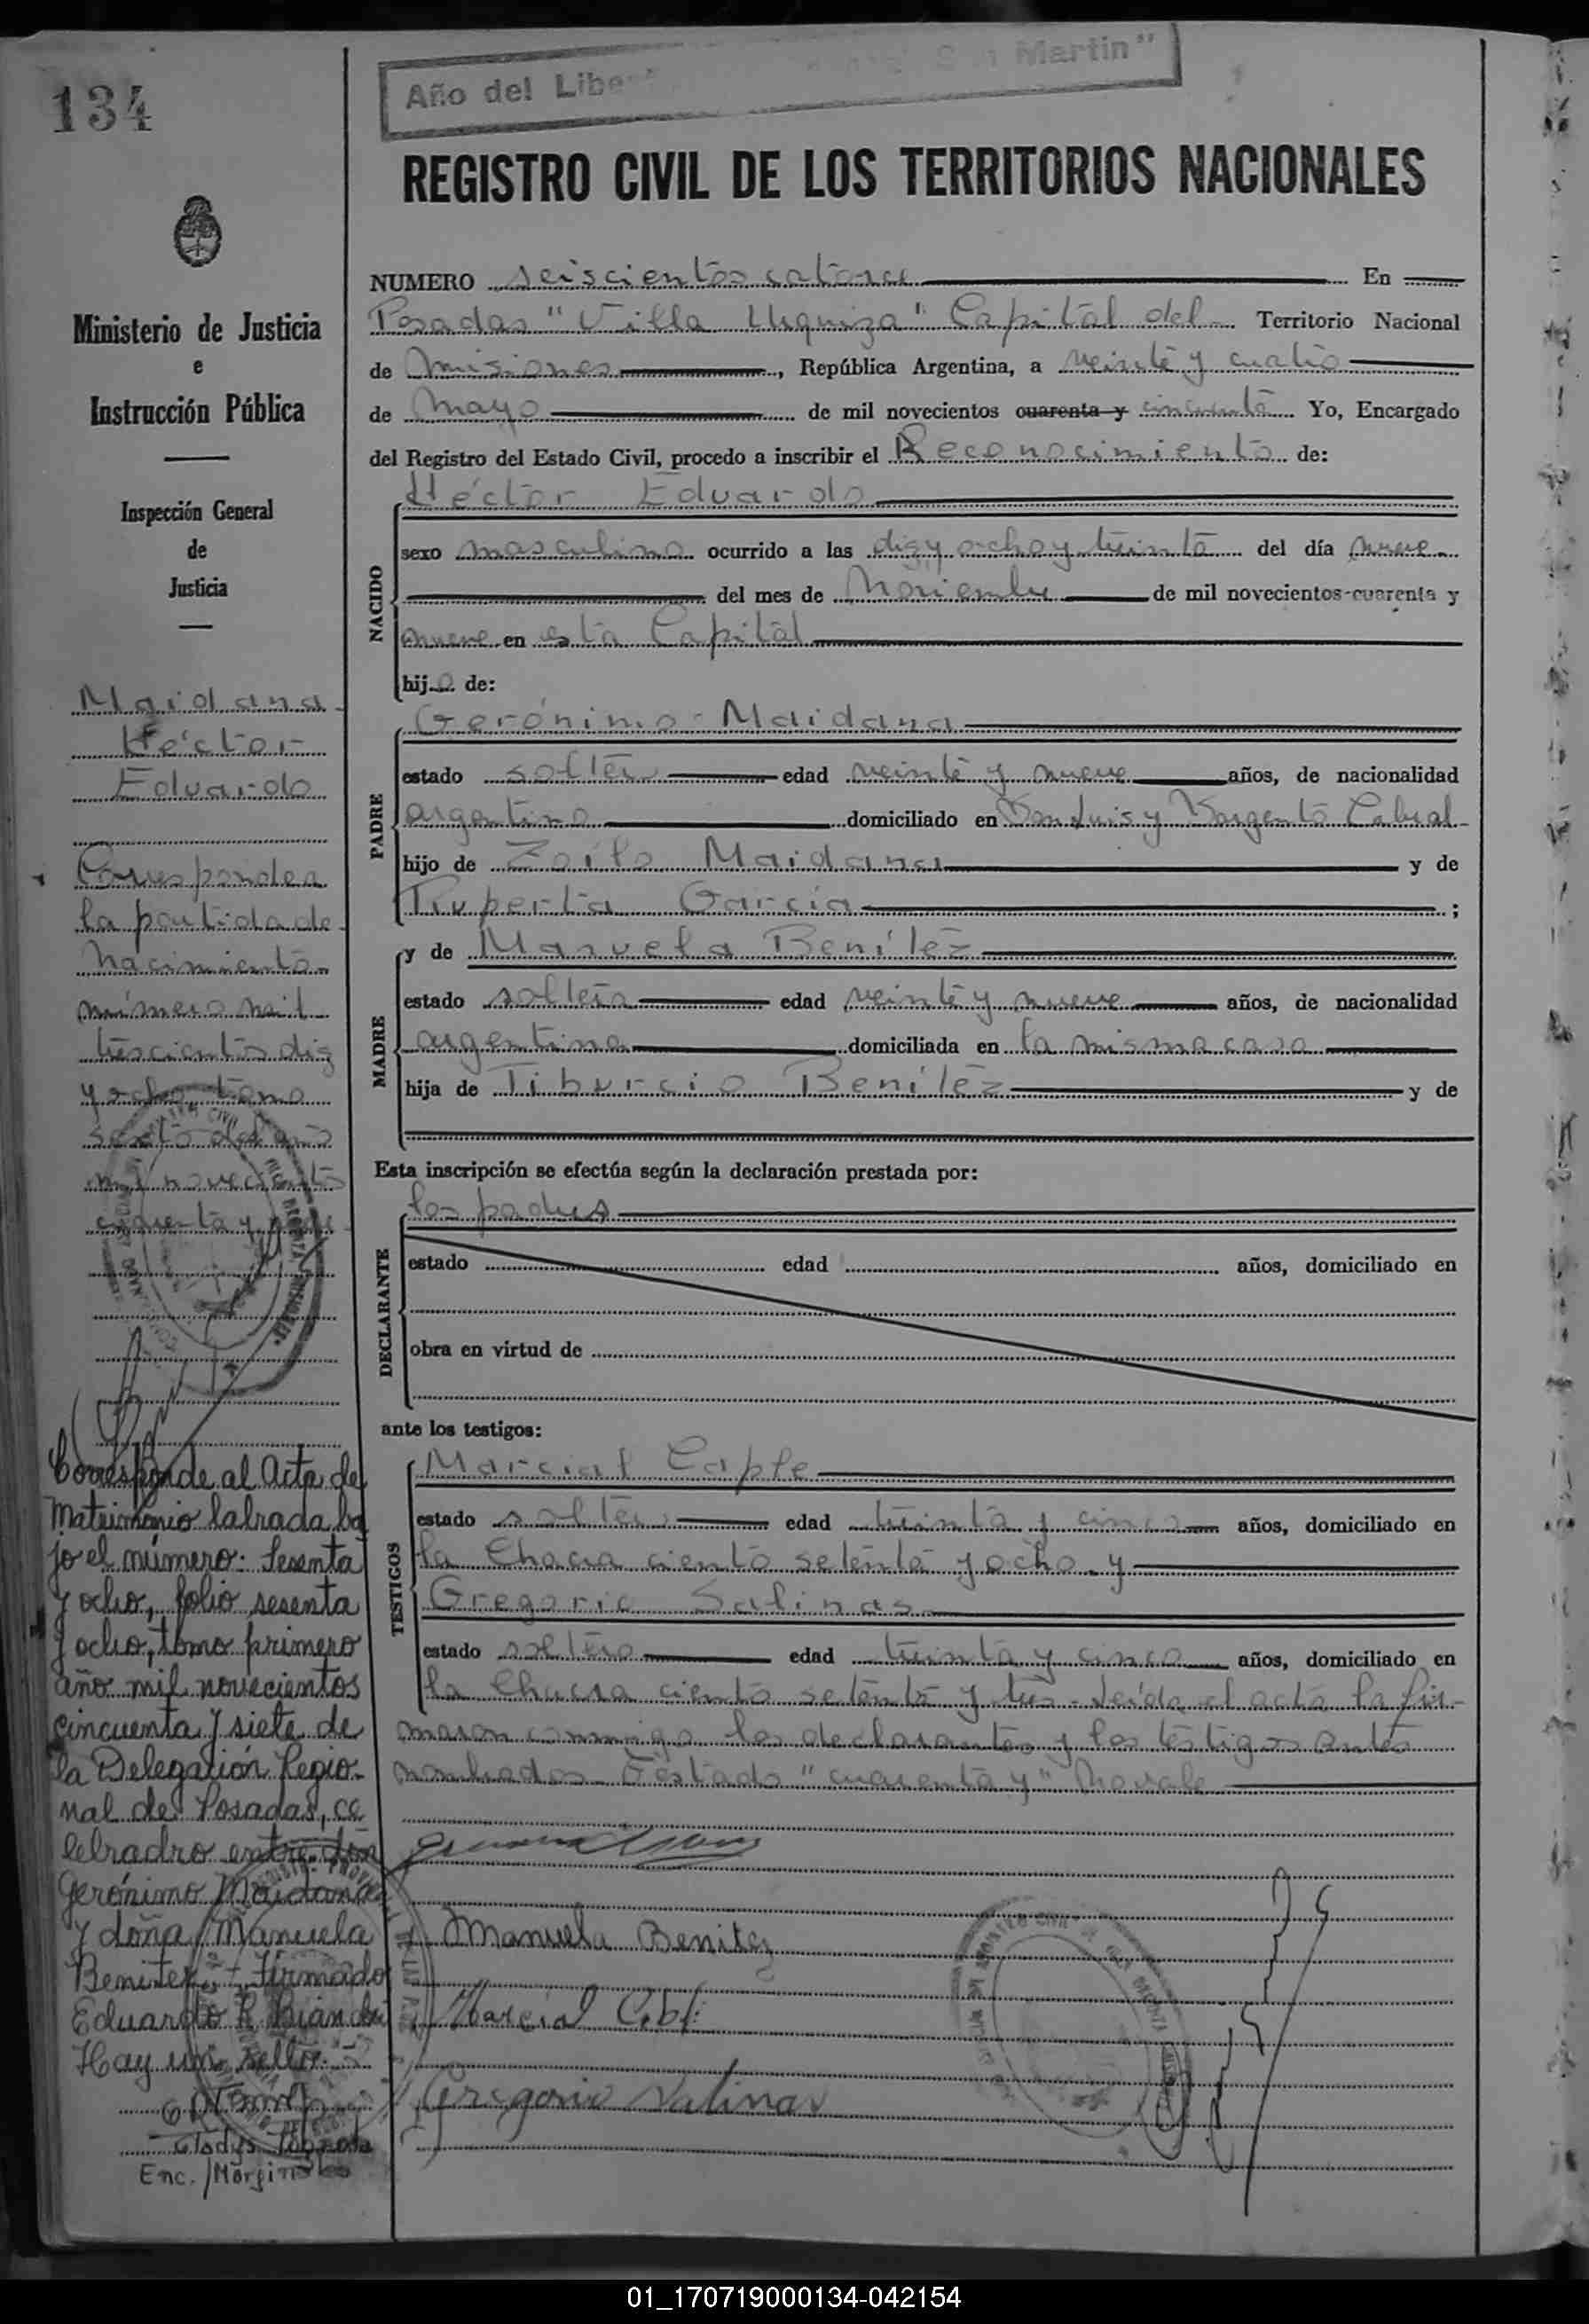 134
Año del Libe
Martin"
REGISTRO CIVIL DE LOS TERRITORIOS NACIONALES
Ministerio de Justicia
e
Instrucción Pública
Inspección General
de
Justicia
Maidana
Héctor
Eduardo
Corresponde a
la partida de
nacimiento
número mil
trescientos diez
y ocho tomo
sexto del año
mil novecientos
cuarenta y
Corresponde al Acta de
Matrimonio labrada ba
jo el número: Sesenta
y ocho, folio sesenta
y ocho, tomo primero
año mil novecientos
cincuenta y siete de
la Delegación Regio-
nal de Posadas, ce
lebradro entre don
Gerónimo Maidana
y doña Manuela
Benitez. Firmado
Eduardo R. Bianchi
Hay un sello.
Gladys
Enc./Marginales
NUMERO seiscientos catorce En
Posadas "Villa Urquiza" Capital del Territorio Nacional
de Misiones, República Argentina, a veinte y cuatro
de mayo de mil novecientos cuarenta y cincuenta Yo, Encargado
del Registro del Estado Civil, procedo a inscribir el Reconocimiento de:
NACIDO
Héctor Eduardo
sexo masculino ocurrido a las diez y ocho y treinta del día nueve
del mes de Noviembre de mil novecientos cuarenta y
nueve en esta Capital
hijo de:
PADRE
Gerónimo Maidana
estado soltero edad veinte y nueve años, de nacionalidad
argentino domiciliado en San Luis y Sargento Cabral
hijo de Zoilo Maidana y de
Ruperta García;
MADRE
y de Manuela Benítez
estado soltera edad veinte y nueve años, de nacionalidad
argentina domiciliada en la misma casa
hija de Tiburcio Benítez y de
Esta inscripción se efectúa según la declaración prestada por:
DECLARANTE
los padres
estado edad años, domiciliado en
obra en virtud de
ante los testigos:
TESTIGOS
Marcial Caple
estado soltero edad treinta y cinco años, domiciliado en
la Chacra ciento setenta y ocho y
Gregorio Salinas
estado soltero edad treinta y cinco años, domiciliado en
la Chacra ciento setenta y tres. Leída el acta la fir-
maron conmigo los declarantes y los testigos antes
nombrados. Testado "cuarenta y" No vale
Manuela Benitez
Marcial
Gregorio Salinas
01_170719000134-042154